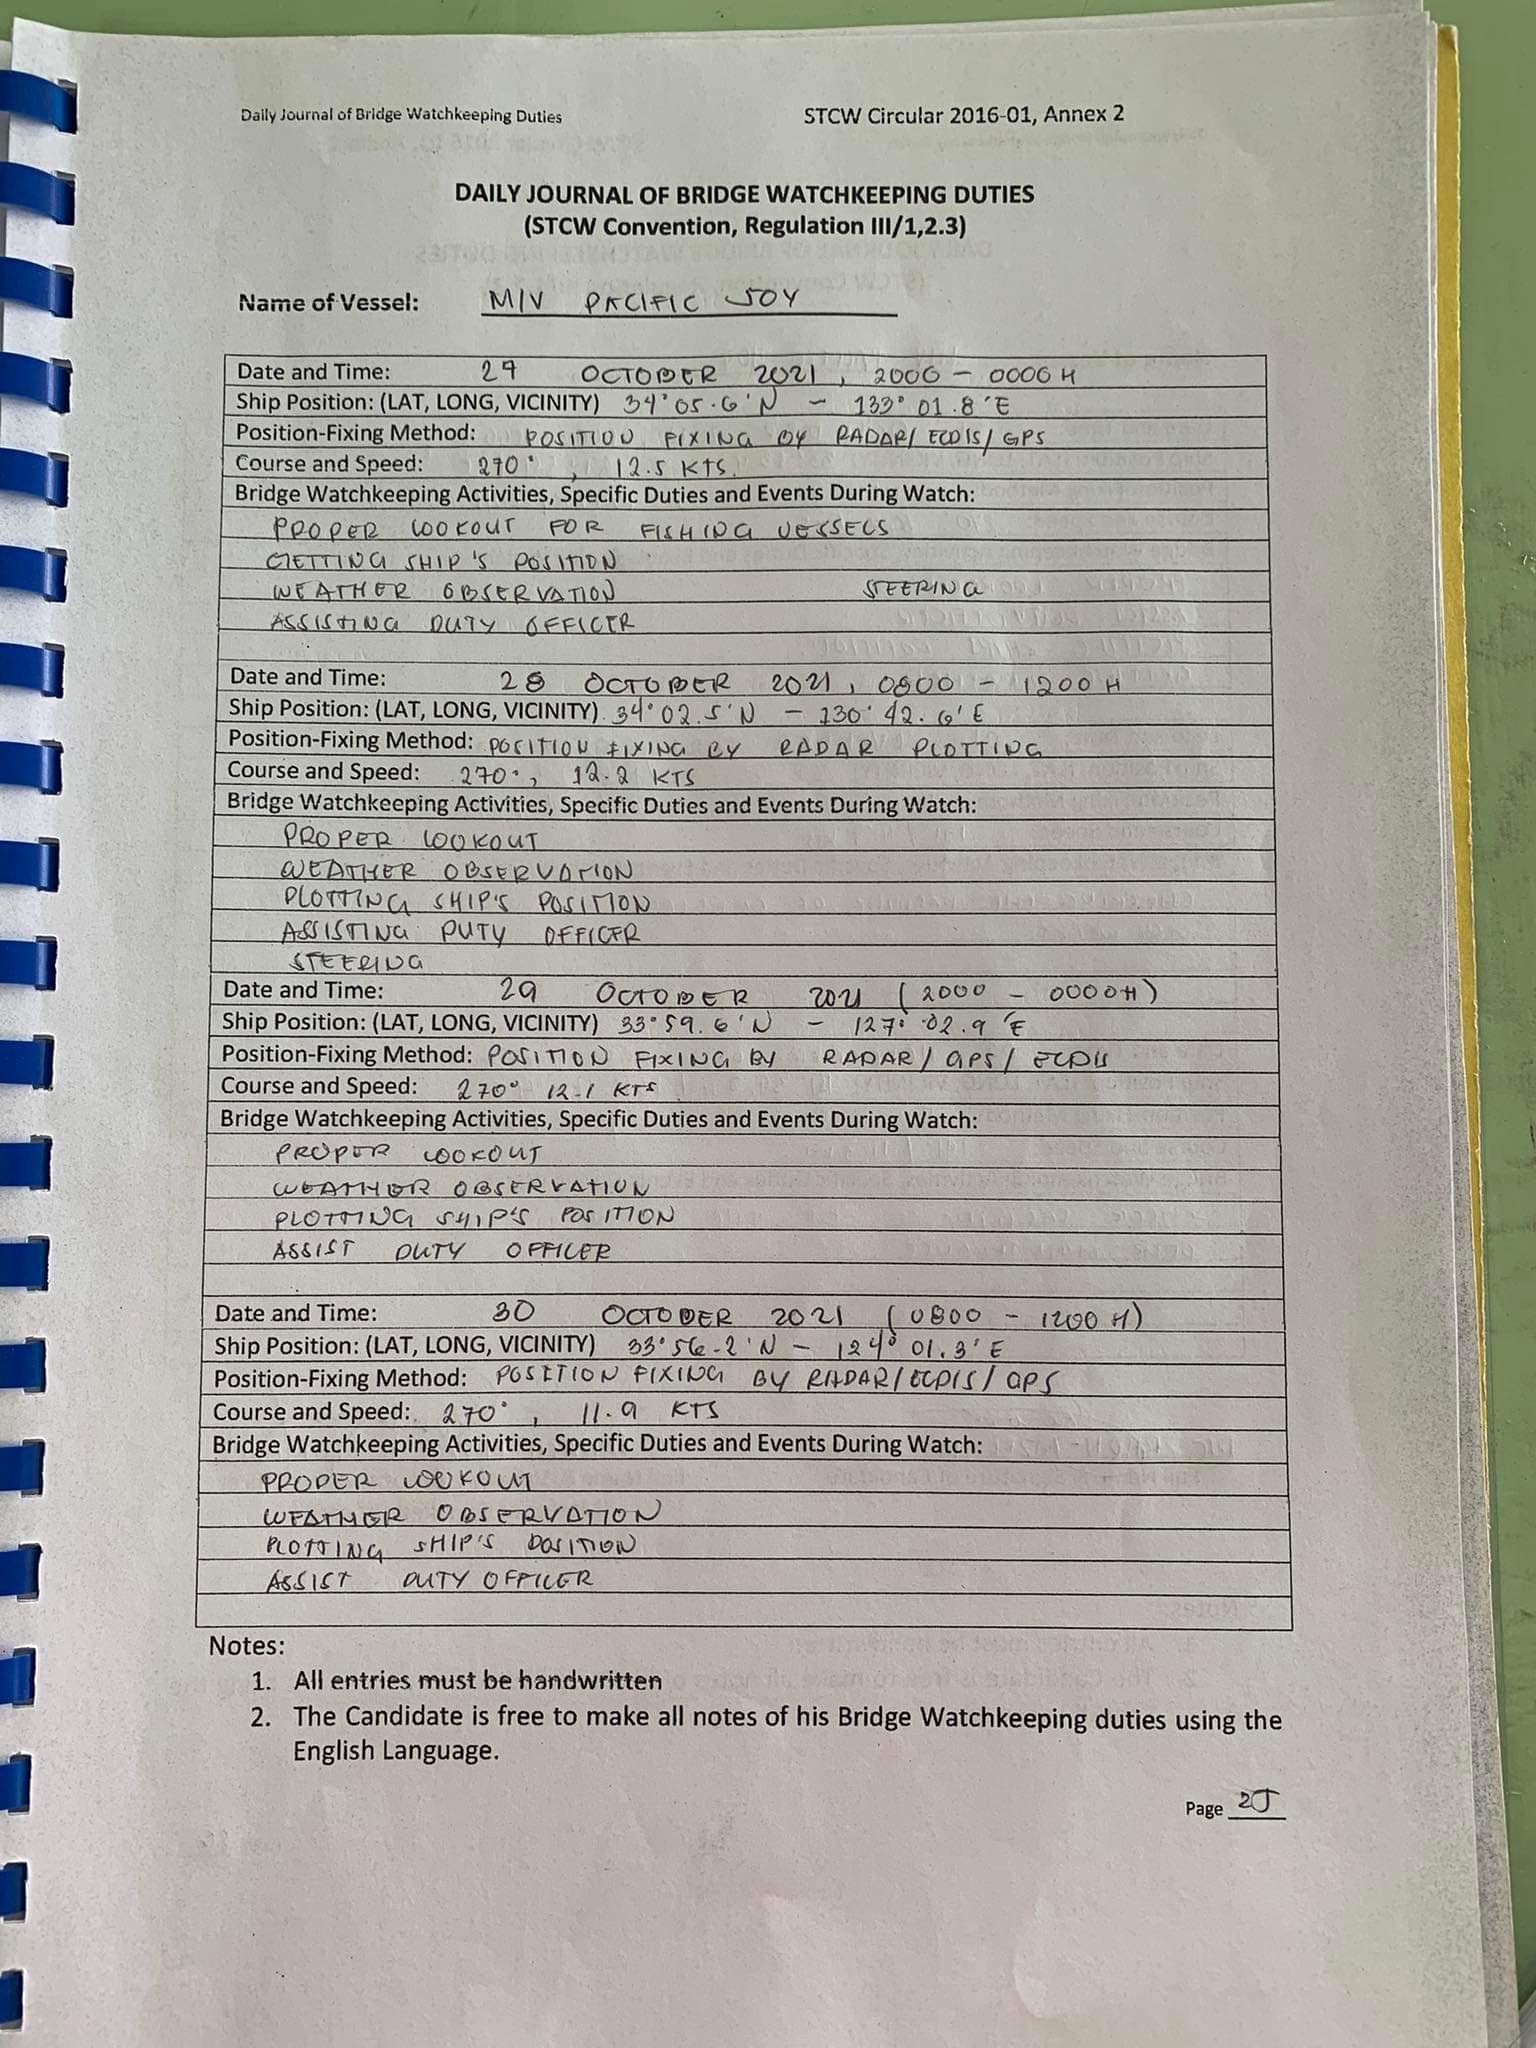 Daily Journal of Bridge Watchkeeping Duties STCW Circular 2016-01, Annex 2
DAILY JOURNAL OF BRIDGE WATCHKEEPING DUTIES
(STCW Convention, Regulation III/1,2.3)
Name of Vessel: M/V PACIFIC JOY
Date and Time: 27 OCTOBER 2021, 2000 - 0000 H
Ship Position: (LAT, LONG, VICINITY) 34° 05.6'N - 133° 01.8'E
Position-Fixing Method: POSITION FIXING BY RADAR/ ECDIS/ GPS
Course and Speed: 270°, 12.5 KTS.
Bridge Watchkeeping Activities, Specific Duties and Events During Watch:
PROPER LOOKOUT FOR FISHING VESSELS
GETTING SHIP'S POSITION
WEATHER OBSERVATION STEERING
ASSISTING DUTY OFFICER
Date and Time: 28 OCTOBER 2021, 0800 - 1200 H
Ship Position: (LAT, LONG, VICINITY) 34° 02.5'N - 130° 42.6'E
Position-Fixing Method: POSITION FIXING BY RADAR PLOTTING
Course and Speed: 270°, 12.2 KTS
Bridge Watchkeeping Activities, Specific Duties and Events During Watch:
PROPER LOOKOUT
WEATHER OBSERVATION
PLOTTING SHIP'S POSITION
ASSISTING DUTY OFFICER
STEERING
Date and Time: 29 OCTOBER 2021 (2000 - 0000H)
Ship Position: (LAT, LONG, VICINITY) 33° 59.6'N - 127° 02.9'E
Position-Fixing Method: POSITION FIXING BY RADAR/ GPS/ ECDIS
Course and Speed: 270° 12.1 KTS
Bridge Watchkeeping Activities, Specific Duties and Events During Watch:
PROPER LOOKOUT
WEATHER OBSERVATION
PLOTTING SHIP'S POSITION
ASSIST DUTY OFFICER
Date and Time: 30 OCTOBER 2021 (0800 - 1200 H)
Ship Position: (LAT, LONG, VICINITY) 33° 56.2'N - 124° 01.3'E
Position-Fixing Method: POSITION FIXING BY RADAR/ECDIS/GPS
Course and Speed: 270°, 11.9 KTS
Bridge Watchkeeping Activities, Specific Duties and Events During Watch:
PROPER LOOKOUT
WEATHER OBSERVATION
PLOTTING SHIP'S POSITION
ASSIST DUTY OFFICER
Notes:
1. All entries must be handwritten
2. The Candidate is free to make all notes of his Bridge Watchkeeping duties using the
English Language.
Page 25